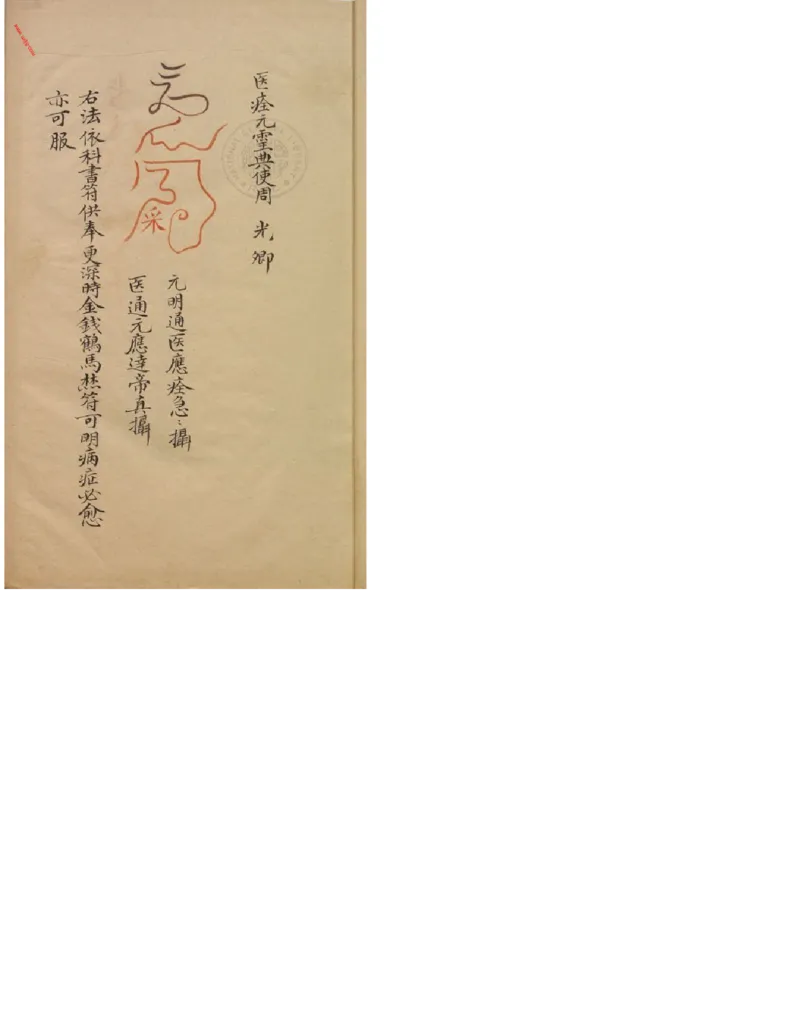 医痊元靈典使周 光卿
采
元明通医應痊急〻攝
医通元應達帝真攝
右法依科書符供奉更深時金錢鶴馬焚符可明病症必愈
亦可服